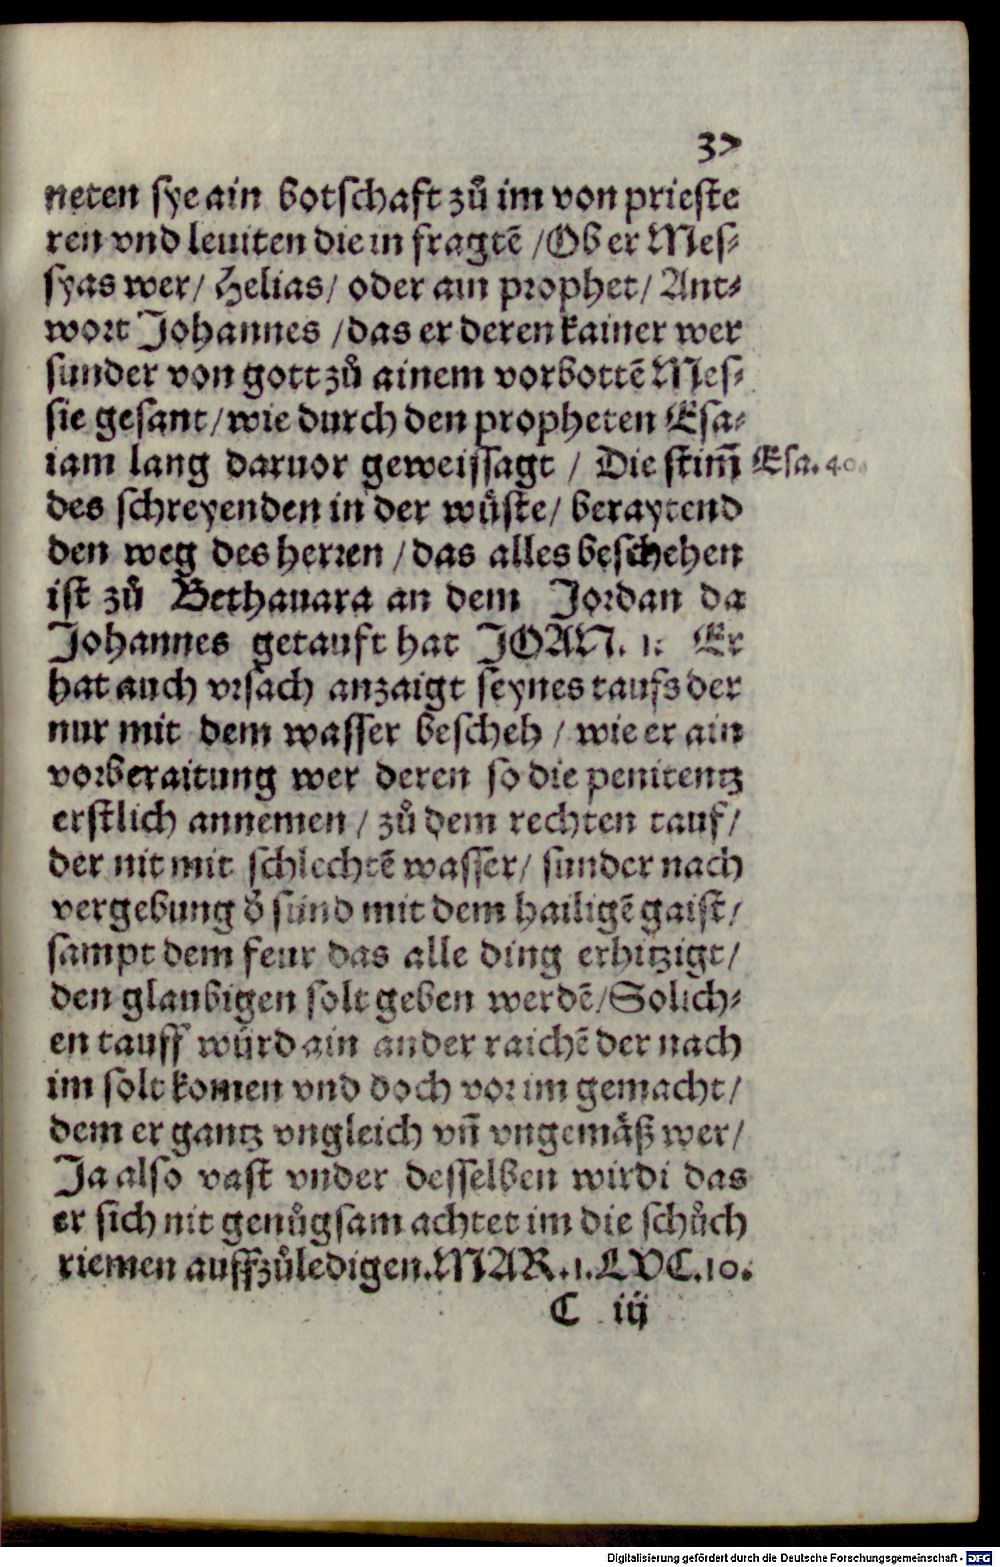 37
neten sye ain botschaft zů im von prieste
ren vnd leuiten die in fragtē /Ob er Mes⸗
syas wer/ Helias/ oder ain prophet/ Ant⸗
wort Johannes /das er deren kainer wer
sunder von gott zů ainem vorbottē Mes⸗
sie gesant/wie durch den propheten Esa⸗
iam lang daruor geweissagt / Die stim̄ Esa. 40.
des schreyenden in der wůste/ beraytend
den weg des herren /das alles beschehen
ist zů Bethauara an dem Jordan da
Johannes getauft hat JOAN. 1. Er
hat auch vrsach anzaigt seynes taufs der
nur mit dem wasser bescheh / wie er ain
vorberaitung wer deren so die penitentz
erstlich annemen / zů dem rechten tauf/
der nit mit schlechtē wasser/ sunder nach
vergebung ð sünd mit dem hailigē gaist/
sampt dem feur das alle ding erhitzigt/
den glaubigen solt geben werdē/Solich⸗
en tauff würd ain ander raichē der nach
im solt komen vnd doch vor im gemacht/
dem er gantz vngleich vn̄ vngemäß wer/
Ja also vast vnder desselben wirdi das
er sich nit genůgsam achtet im die schůch
riemen auffzůledigen.MAR.1.LVC.10.
C iij
Digitalisierung gefördert durch die Deutsche Forschungsgemeinschaft - DFG